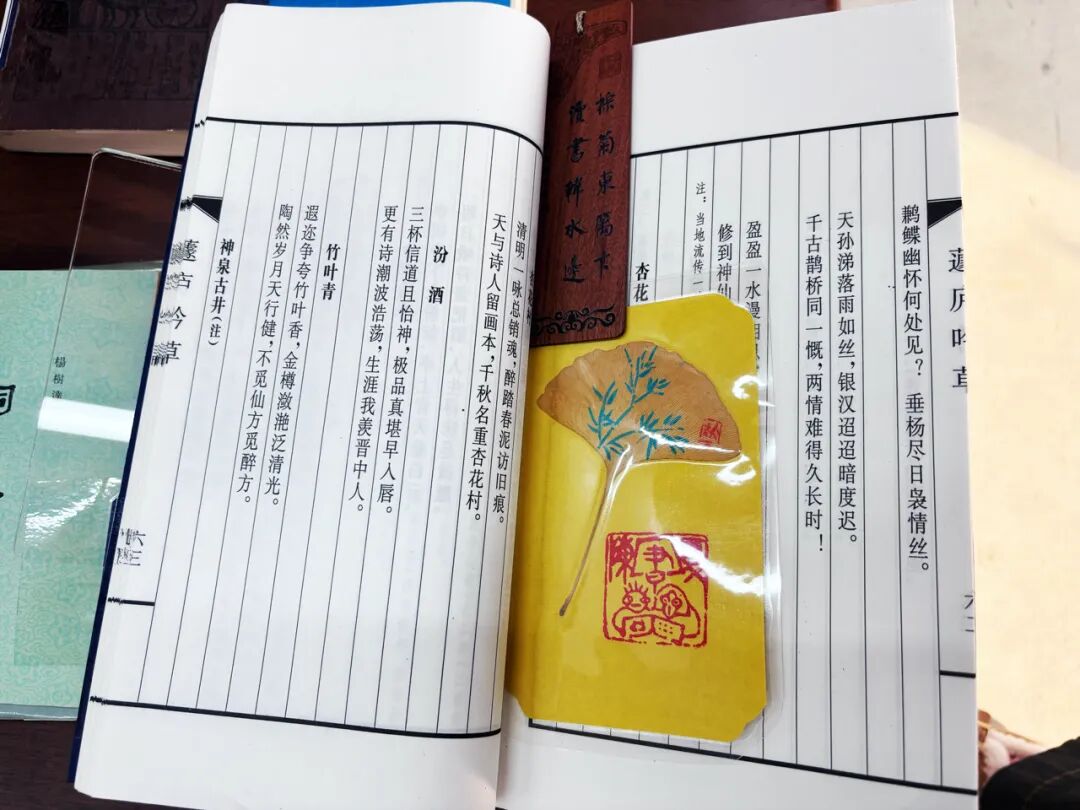 鹣鲽幽怀何处见？垂杨尽日袅情丝。
天孙涕落雨如丝，银汉迢迢暗度迟。
千古鹊桥同一慨，两情难得久长时！
盈盈一水漫
修到神仙
注：当地流传一
杏花
菊東
書 水
陳
清明一咏总销魂，醉踏春泥访旧痕。
天与诗人留画本，千秋名重杏花村。
汾酒
三杯信道且怡神，极品真堪早入唇。
更有诗潮波浩荡，生涯我羡晋中人。
竹叶青
遐迩争夸竹叶香，金樽潋滟泛清光。
陶然岁月天行健，不觅仙方觅醉方。
神泉古井（注）
庐吟草
六三
楊樹